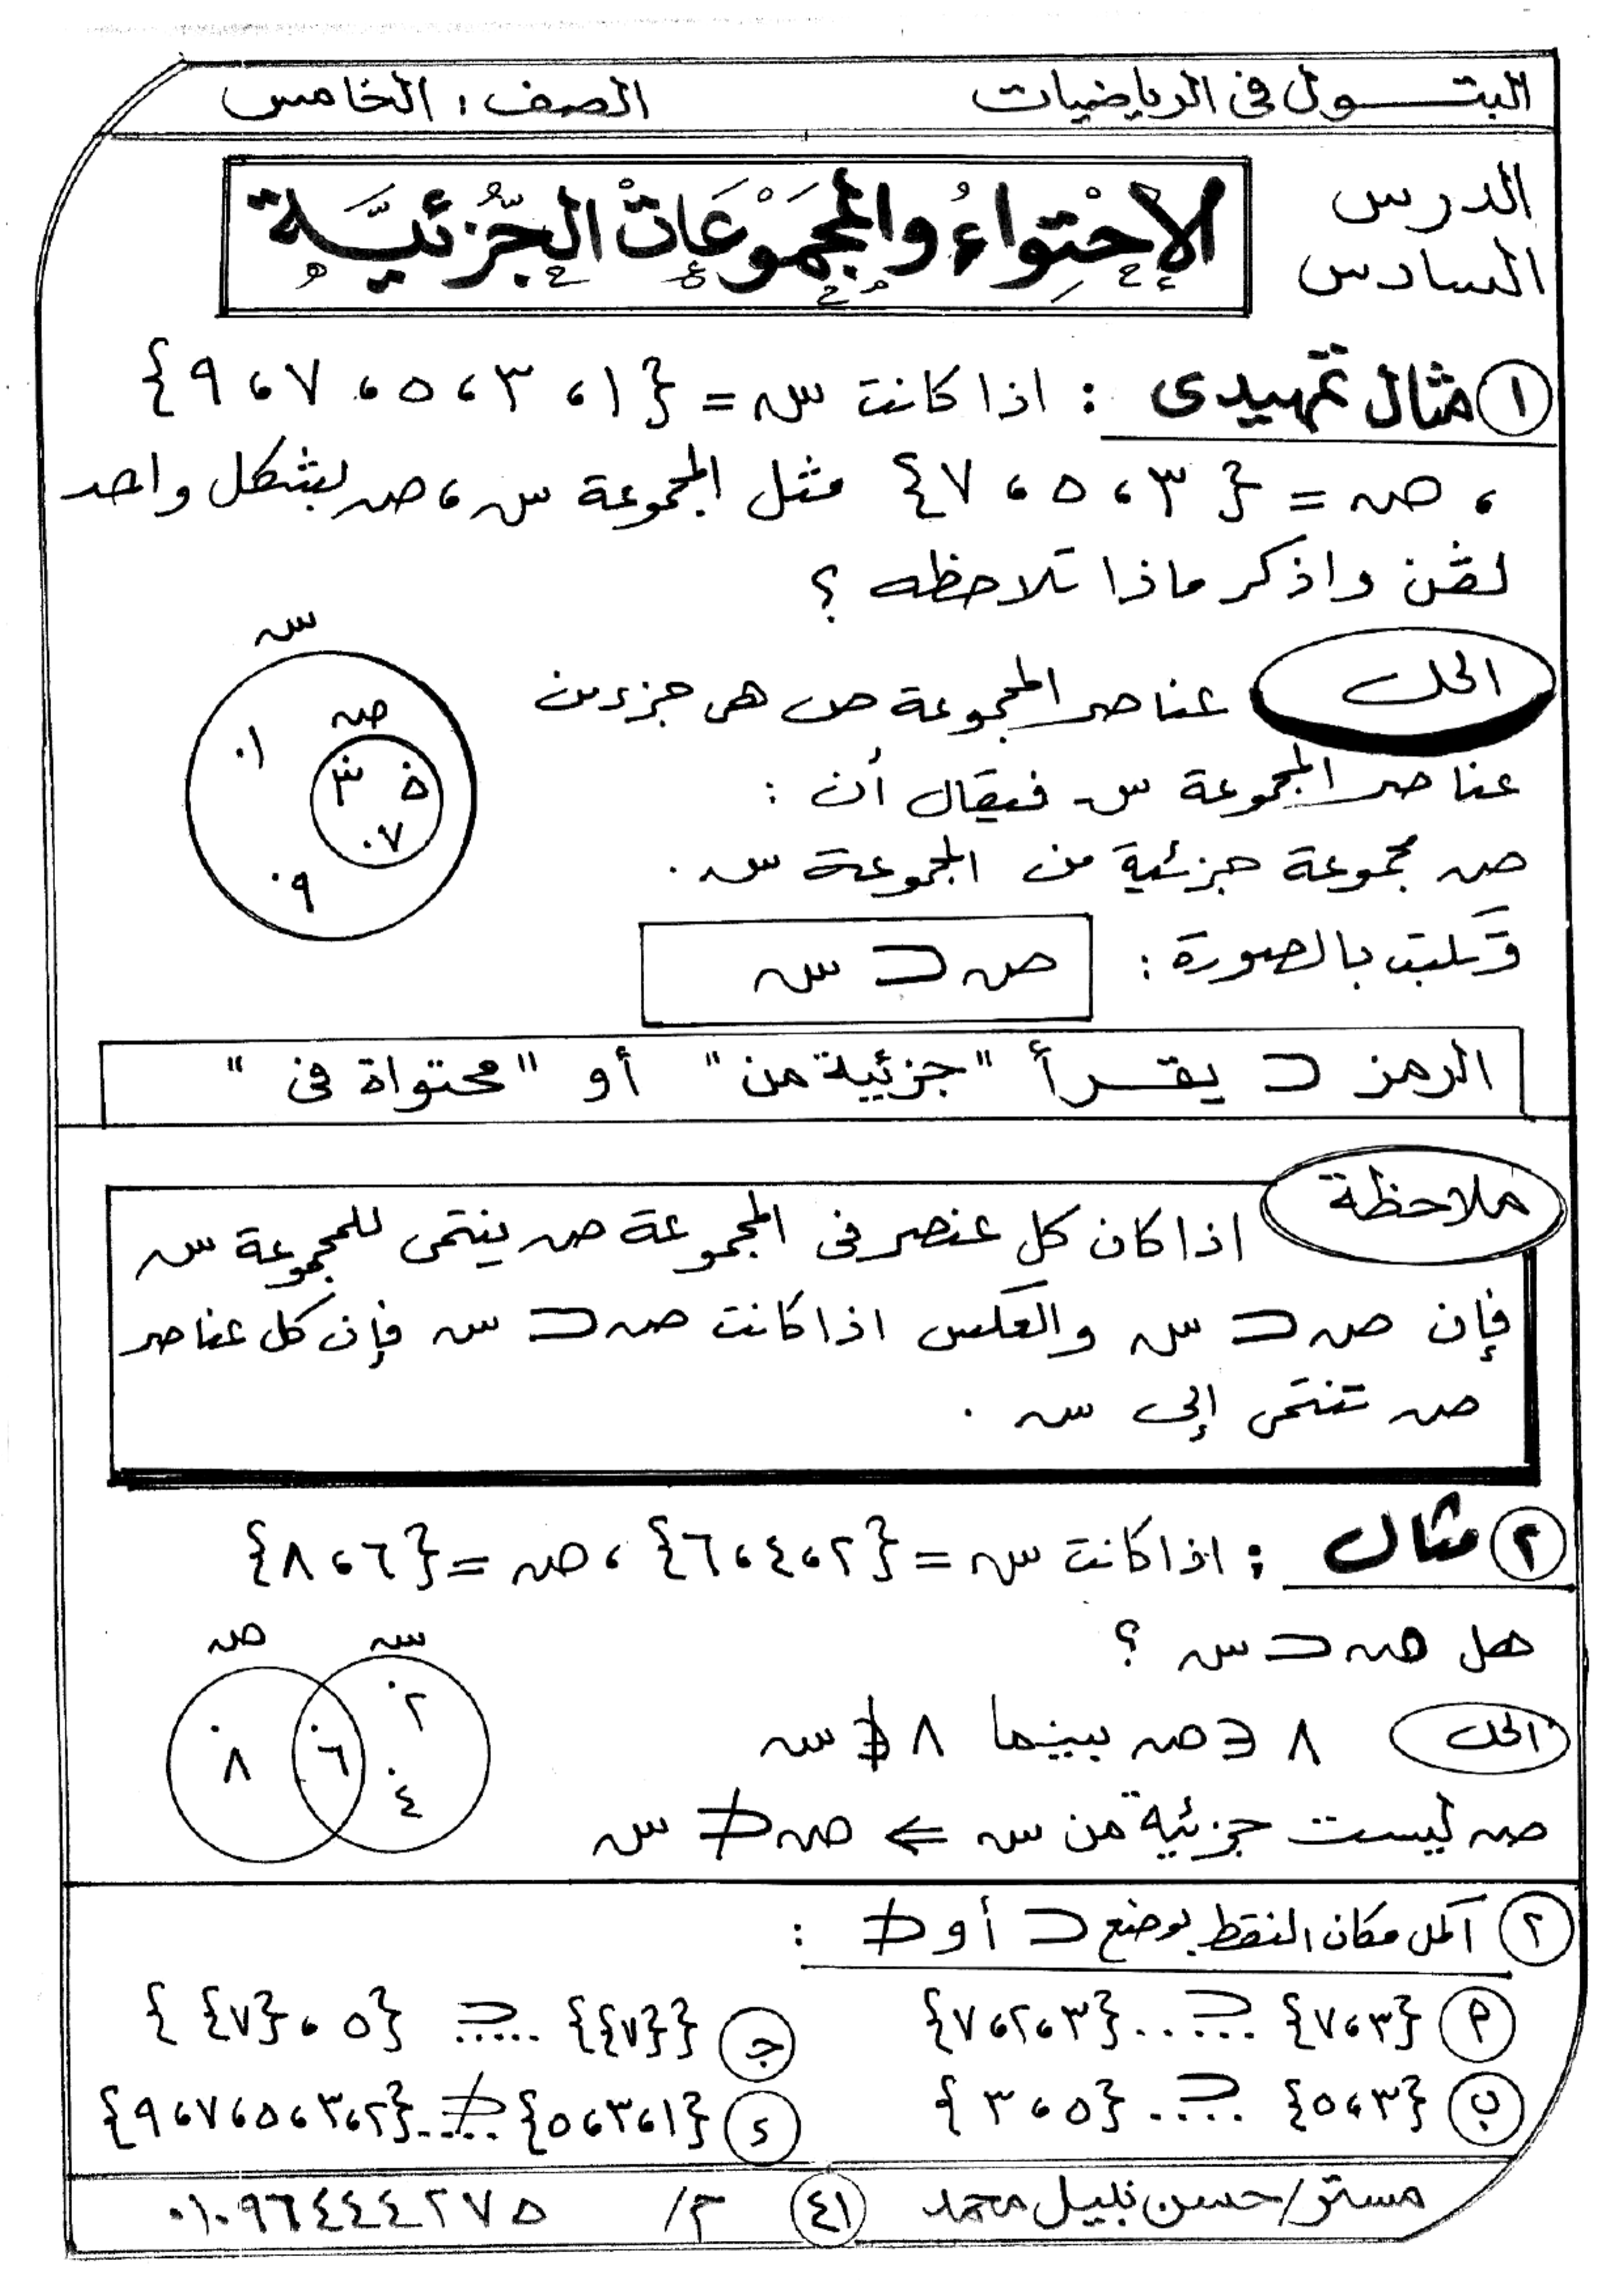 البتـــول فى الرياضيات
الصف : الخامس
الدرس السادس
الإحْتِواءُ والمجَمُوْعَاتْ الجُزْئيَّـة
١ مثال تمهيدى : اذا كانت س = {١ ، ٣ ، ٥ ، ٧ ، ٩}
، ص = {٣ ، ٥ ، ٧} مثل المجموعة س ، ص بشكل واحد
لڤن واذكر ماذا تلاحظه ؟
الحل عناصر المجموعة ص هى جزء من
عناصر المجموعة س فيقال أن :
ص مجموعة جزئية من المجموعة س .
وتكتب بالصورة : ص ⊂ س
س
ص
١
٣ ٥
٧
٩
الرمز ⊂ يقـــرأ "جزئية من" أو "محتواة فى"
ملاحظة
اذا كان كل عنصر فى المجموعة ص ينتمى للمجموعة س
فإن ص ⊂ س والعكس اذا كانت ص ⊂ س فإن كل عناصر
ص تنتمى إلى س .
٢ مثال : اذا كانت س = {٢ ، ٤ ، ٦} ، ص = {٦ ، ٨}
هل ص ⊂ س ؟
الحل ٨ ∈ ص بينما ٨ ∉ س
ص ليست جزئية من س ⇐ ص ⊄ س
س
ص
٢
٨ ٦
٤
٢ أكمل مكان النقط بوضع ⊂ أو ⊄ :
أ {٣ ، ٧} ..⊂.. {٣ ، ٢ ، ٧}
ج {{٧}} ..⊂.. {٥ ، {٧}}
ب {٣ ، ٥} ..⊂.. {٥ ، ٣}
د {١ ، ٣ ، ٥} ..⊄.. {٢ ، ٣ ، ٥ ، ٧ ، ٩}
مستر/ حسن نبيل محمد
٤١
م/ ٠١٠٩٦٤٤٤٢٧٥